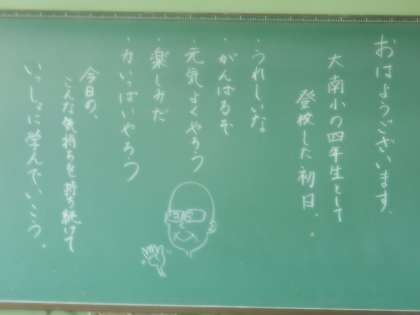 おはようございます。
大南小の四年生として
登校した初日。
・うれしいな
・がんばるぞ
・元気よくやろう
・楽しみだ
・力いっぱいやろう
今日の、
こんな気持ちを持ち続けて
いっしょに学んでいこう。